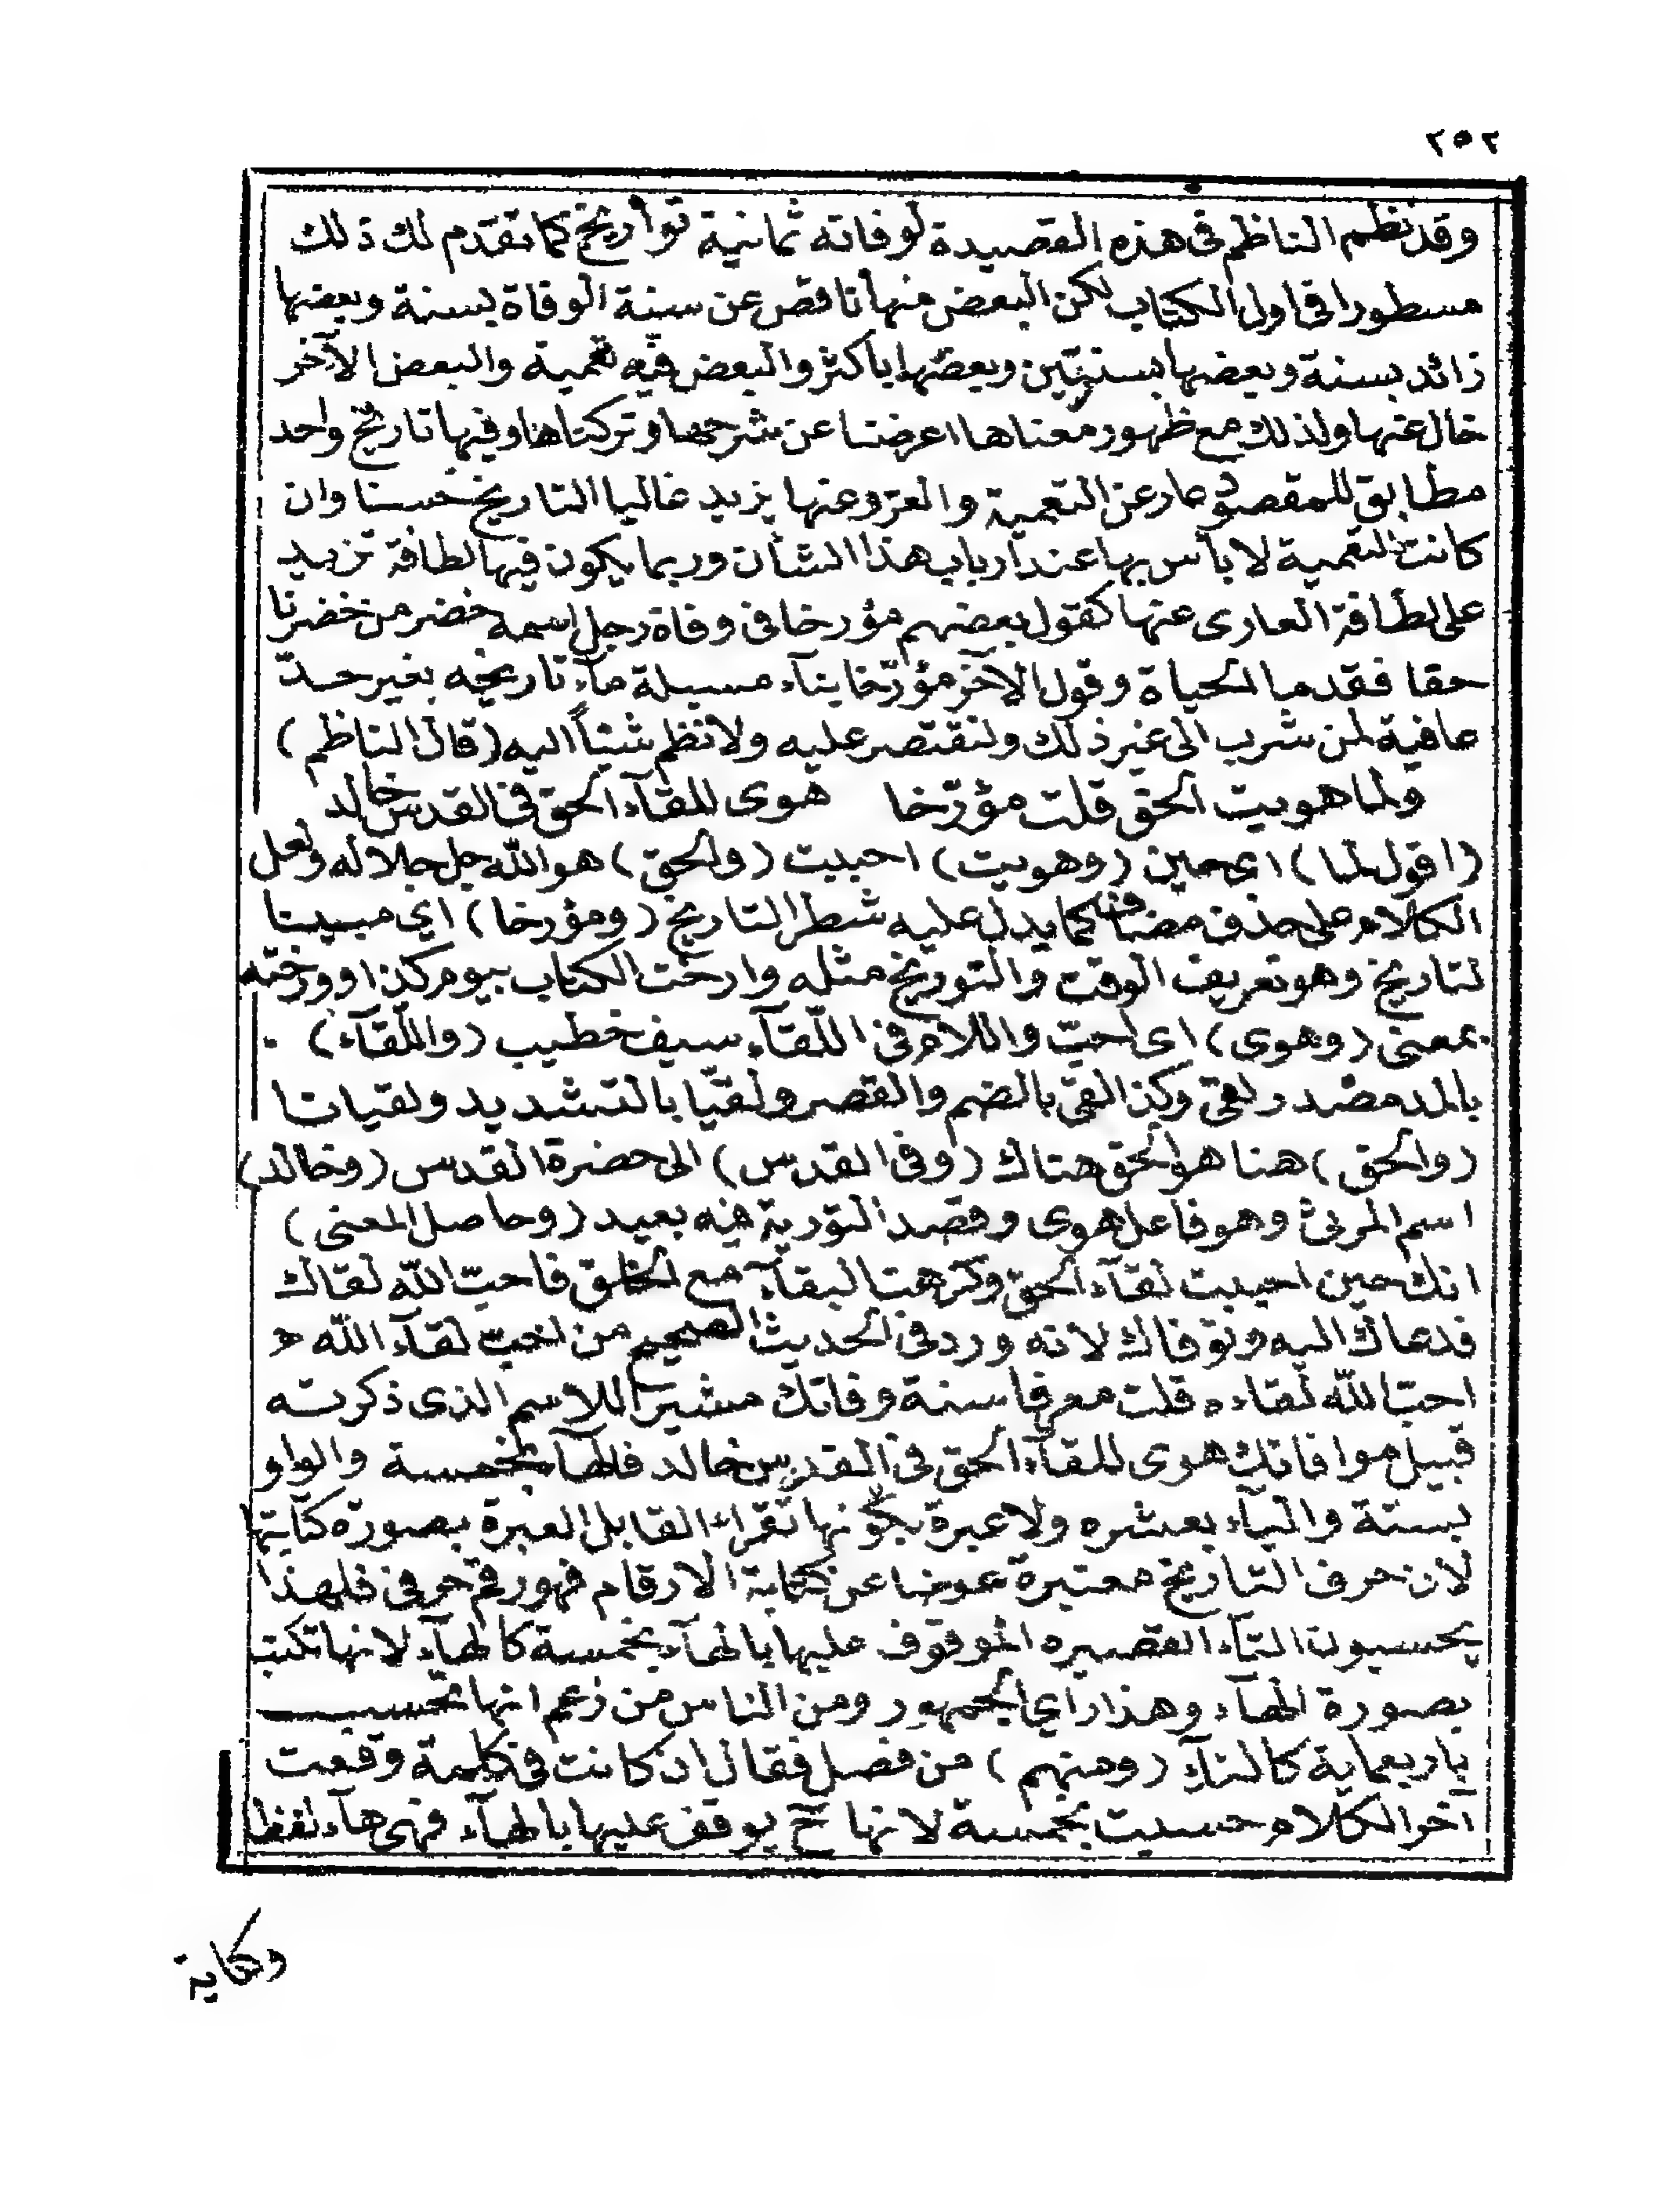 ٢٥٢
وقد نظم الناظم فى هذه القصيدة لوفاته ثمانية تواريخ كما تقدم لك ذلك
مسطورا فى اول الكتاب لكن البعض منها ناقص عن سنة الوفاة بسنة وبعضها
زائد بسنة وبعضها بسنتين وبعضها باكثر والبعض فيه تعمية والبعض الآخر
خال عنها ولذلك مع ظهور معناها اعرضنا عن شرحها وتركناها وفيها تاريخ واحد
مطابق للمقصود عار عن التعمية والعرو عنها يزيد غالبا التاريخ حسنا وان
كانت التعمية لا بأس بها عند ارباب هذا الشأن وربما يكون فيها لطافة تزيد
على لطافة العارى عنها كقول بعضهم مؤرخا فى وفاة رجل اسمه خضر من خضرنا
حقا فقد ما الحياة وقول الآخر مؤرّخا بناء مسيلة ماء تاريخه بغير حدّ
عافية لمن شرب الى غير ذلك ولنقتصر عليه ولا نظم شيئاً اليه (قال الناظم)
ولما هويت الحق قلت مؤرّخا هوى للقآء الحق فى القدس خالد
(اقول لما) اى حين (وهويت) احببت (والحق) هو الله جل جلاله ولعل
الكلام على حذف مضاف كما يدل عليه شطر التاريخ (ومؤرخا) اي مبينا
لتاريخ وهو تعريف الوقت والتوريخ مثله وارخت الكتاب بيوم كذا وورخته
بمعنى (وهوى) اى احبّ واللام فى اللقآء سيف خطيب (واللقآء)
بالمد مصدر لقى وكذا لقى بالضم والقصر ولقيّا بالتشديد ولقيانا
(والحق) هنا هو الحق هناك (وفى القدس) الى حضرة القدس (وخالد)
اسم المرثى وهو فاعل هوى وقصد التورية فيه بعيد (وحاصل المعنى)
انك حين احببت لقآء الحق وكرهت البقآء مع الخلق فاحبّ الله لقاك
فدعاك اليه وتوفاك لانه ورد فى الحديث الصحيح من احب لقآء الله
احبّ الله لقاءه قلت معرفا سنة وفاتك مشيرا للاسم الذى ذكرته
قبيل موافاتك هوى للقآء الحق فى القدس خالد فالهآء بخمسة والواو
بستة واليآء بعشره ولا عبرة بكونها تقراء القا بل العبرة بصورة كتابتها
لان حرف التاريخ معتبرة عوضا عن كتابة الارقام فهو رقم حرفى فلهذا
يحسبون التآء القصيره الموقوف عليها بالهآء بخمسة كالهآء لانها تكتب
بصورة الهآء وهذا راي الجمهور ومن الناس من زعم انها تحسب
باربعماية كالتآء (ومنهم) من فصل فقال ان كانت فى كلمة وقعت
آخر الكلام حسبت بخمسة لانها ح يوقف عليها بالهآء فهى هآء لفظا
وكتابة